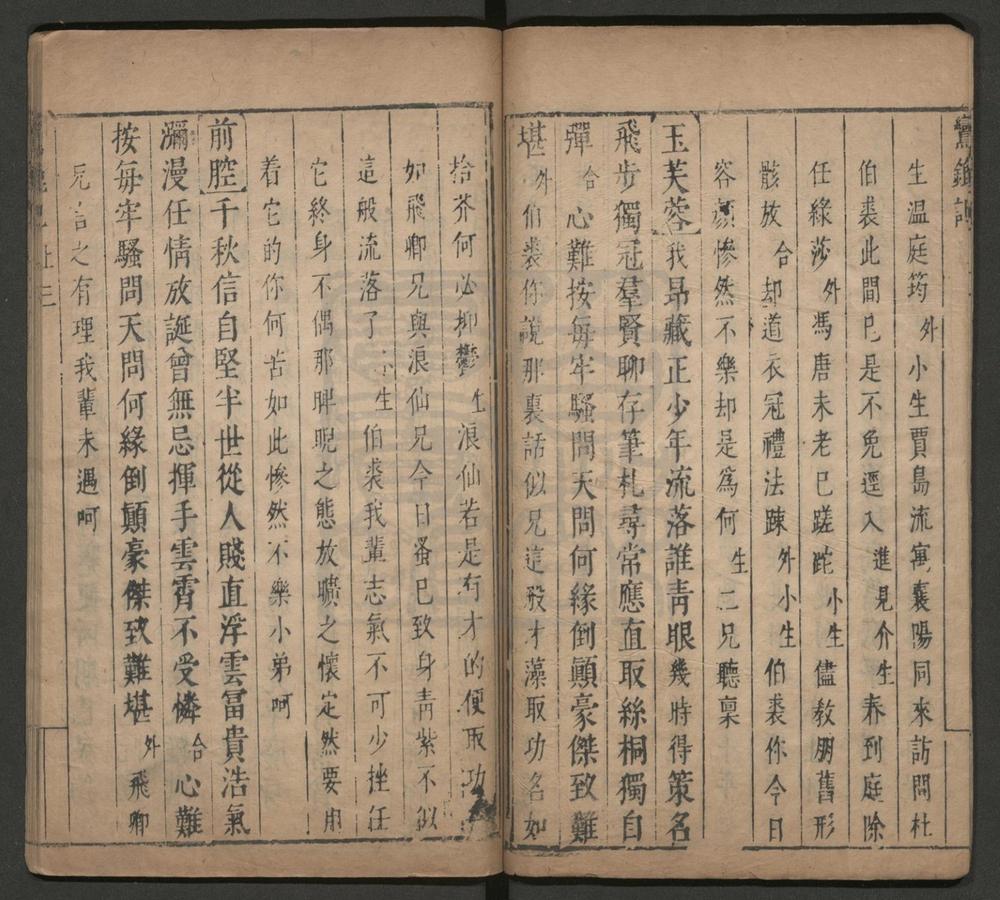 鸞鎞記
生温庭筠 外 小生賈島流寓襄陽同來訪問杜
伯裘此間已是不免逕入 進見介生 春到庭除
任綠莎 外 馮唐未老已蹉跎 小生 儘教朋舊形
骸放 合 却道衣冠禮法踈 外小生 伯裘你今日
容顔慘然不樂却是爲何 生 二兄聽禀
玉芙蓉 我昂藏正少年流落誰青眼幾時得策名
飛步獨冠羣賢聊存筆札尋常應直取絲桐獨自
彈 合 心難按每牢騷問天問何緣倒顛豪傑致難
堪 外 伯裘你說那裏話似兄這般才藻取功名如
拾芥何必抑鬱 生 浪仙若是有才的便取功
如飛卿兄與浪仙兄今日蚤已致身青紫不似
這般流落了 小生 伯裘我輩志氣不可少挫任
它終身不偶那睥睨之態放曠之懷定然要由
着它的你何苦如此慘然不樂小弟呵
前腔 千秋信自堅半世從人賤直浮雲冨貴浩氣
瀰漫任情放誕曾無忌揮手雲霄不受憐 合 心難
按每牢騷問天問何緣倒顛豪傑致難堪 外 飛卿
兄言之有理我輩未遇呵